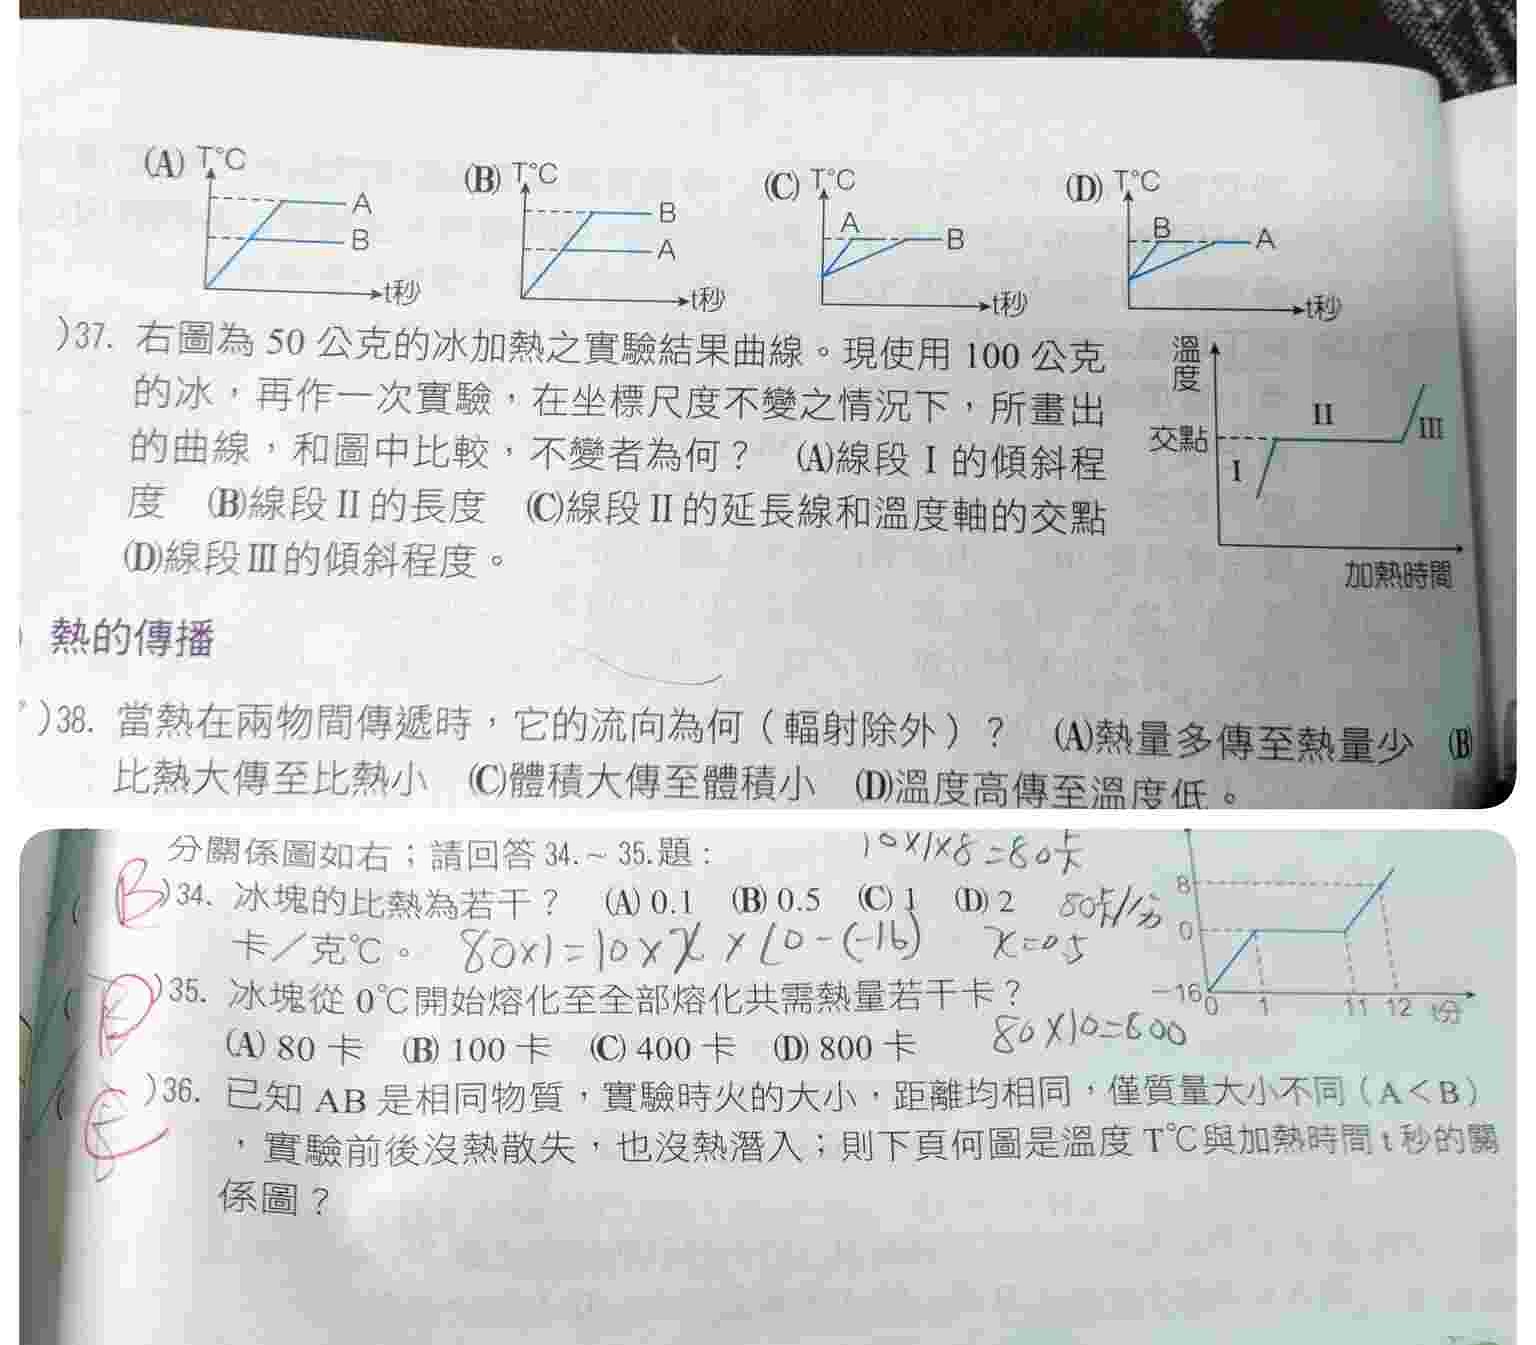 (A) T℃ A B t秒
(B) T℃ B A t秒
(C) T℃ A B t秒
(D) T℃ B A t秒
)37. 右圖為 50 公克的冰加熱之實驗結果曲線。現使用 100 公克
的冰，再作一次實驗，在坐標尺度不變之情況下，所畫出
的曲線，和圖中比較，不變者為何？ (A)線段 I 的傾斜程
度 (B)線段 II 的長度 (C)線段 II 的延長線和溫度軸的交點
(D)線段 III 的傾斜程度。
溫度
交點
I
II
III
加熱時間
熱的傳播
)38. 當熱在兩物間傳遞時，它的流向為何（輻射除外）？ (A)熱量多傳至熱量少 (B)
比熱大傳至比熱小 (C)體積大傳至體積小 (D)溫度高傳至溫度低。
分關係圖如右；請回答 34.～ 35.題：
10×1×8=80卡
B
)34. 冰塊的比熱為若干？ (A) 0.1 (B) 0.5 (C) 1 (D) 2
80卡/分
卡／克℃。
80×1=10×x×[0-(-16)
x=0.5
8
0
-16
0 1 11 12 t分
)35. 冰塊從 0℃開始熔化至全部熔化共需熱量若干卡？
(A) 80 卡 (B) 100 卡 (C) 400 卡 (D) 800 卡
80×10=800
)36. 已知 AB 是相同物質，實驗時火的大小，距離均相同，僅質量大小不同（A＜B）
，實驗前後沒熱散失，也沒熱潛入；則下頁何圖是溫度 T℃與加熱時間 t 秒的關
係圖？